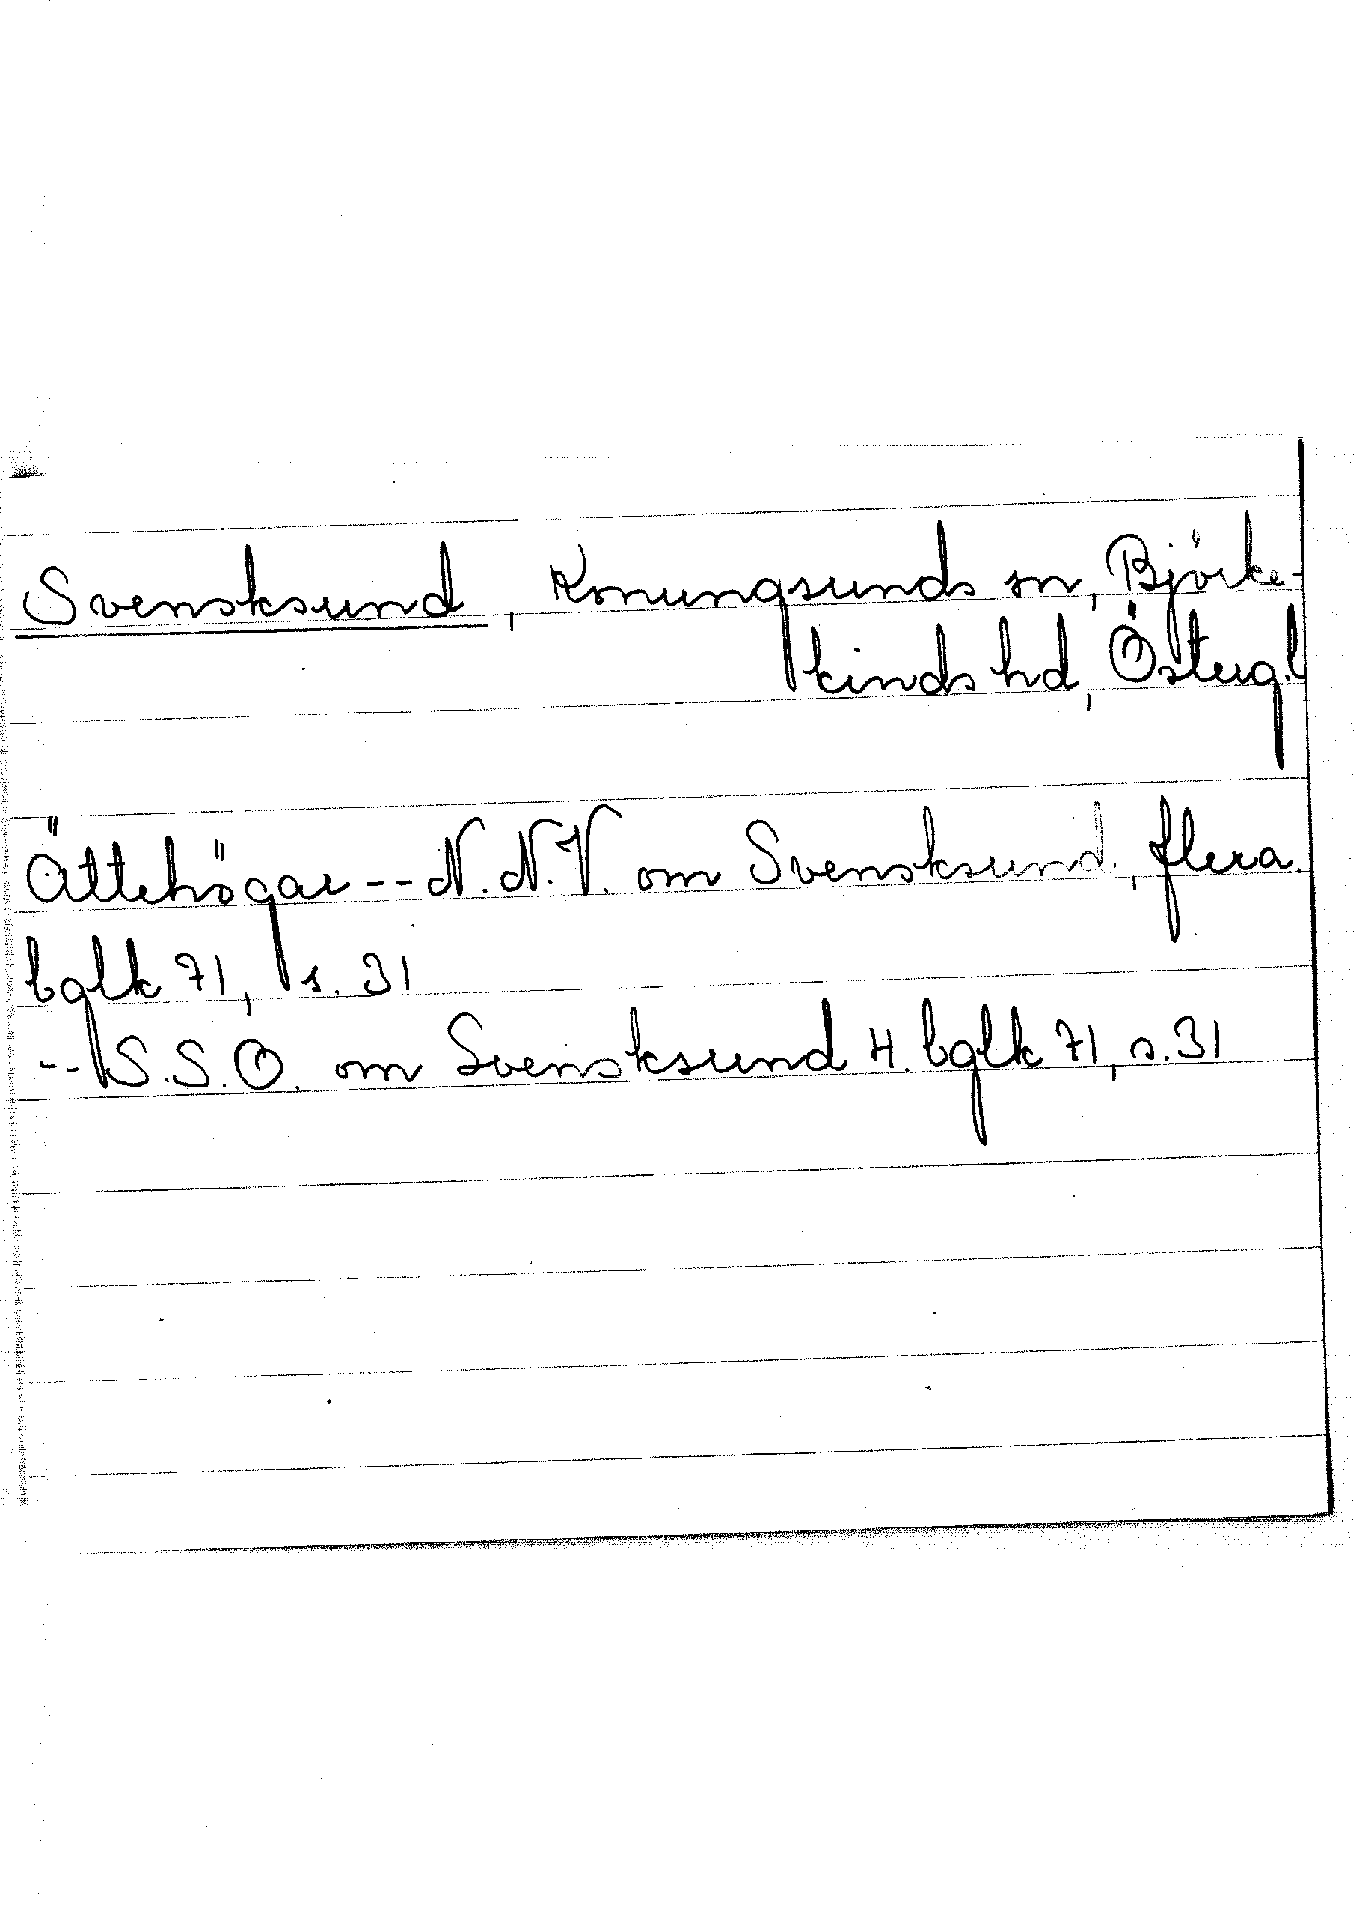 Svensksund, Konungsunds sn, Björke-
kinds hd, Österg.l
Ättehögar -- N.N.V. om Svensksund, flera.
bglk 71, s. 31
-- S.S.O. om Svensksund 4. bglk 71, s. 31